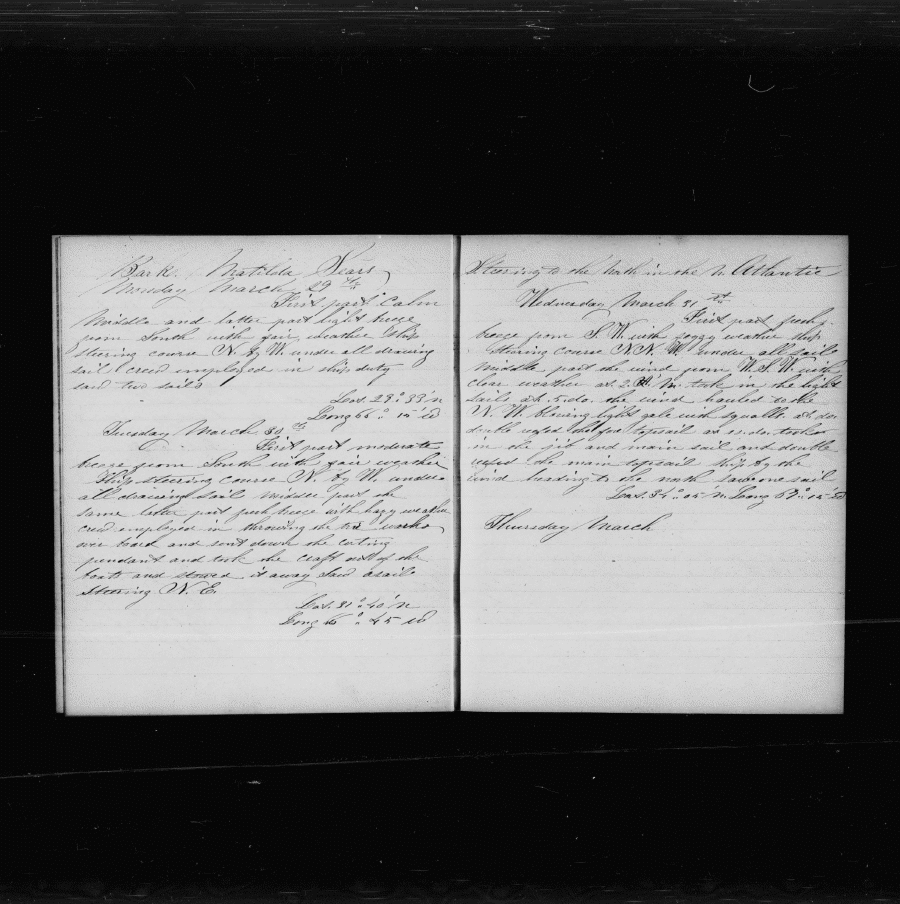 Bark. Matilda Sears
Monday March 29 th
First part Calm
Middle and latter part light breeze
from South with fair weather Ship
steering course N. by W. under all drawing
sail crew employed in ship duty
saw two sails
Lat. 29° 33' N
Long 66° 15' W
Tuesday March 30 th
First part moderate
breeze from South with fair weather
Ship steering course N. by W. under
all drawing sail Middle part the
same latter part fresh breeze with hazy weather
crew employed in throwing the try works
over board and sent down the cuting
pendant and took the craft out of the
boats and stowed it away Saw a sail
Steering N. E.
Lat. 31° 40' N
Long 45 W
Steering to the North in the N Atlantic
Wednesday March 31. st
First part fresh
breeze from S. W. with foggy weather ship
Steering course N. N. W. under all sail
Middle part the wind from W. S. W. with
clear weather at 2. A. M. took in the light
sails at 5. do. the wind hauled to the
N. W. blowing light gale with squalls at do.
double reefed the fore topsail at do. took
in the jib and main sail and double
reefed the main topsail Ship by the
wind heading to the north saw one sail
Lat. 34° 05 N. Long 67° 15 W
Thursday March